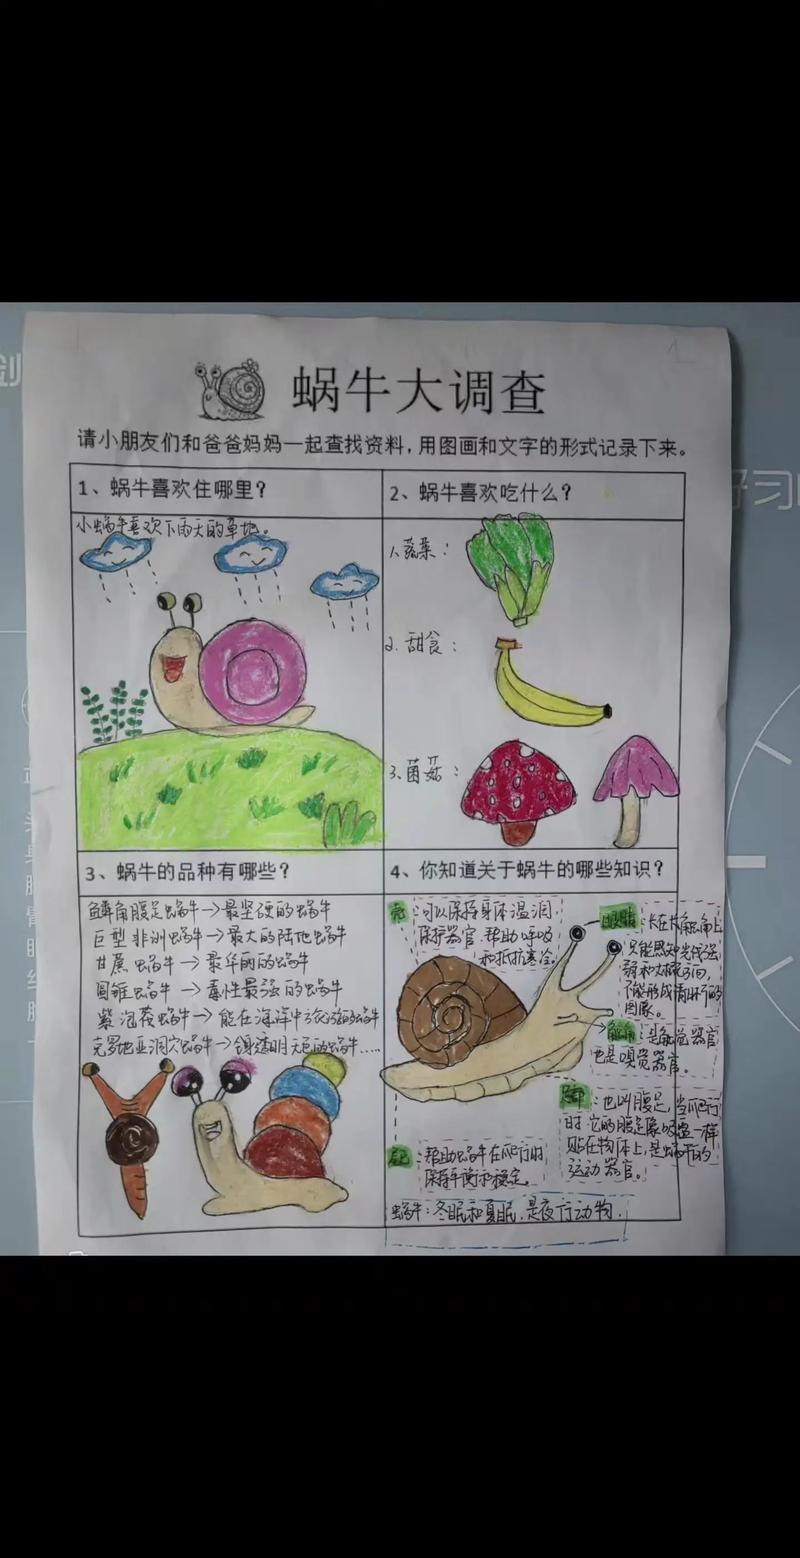 蜗牛大调查
请小朋友们和爸爸妈妈一起查找资料，用图画和文字的形式记录下来。
1、蜗牛喜欢住哪里？
小蜗牛喜欢下雨天的草地。
2、蜗牛喜欢吃什么？
1.蔬菜：
2.甜食：
3.菌菇：
3、蜗牛的品种有哪些？
鳞角腹足蜗牛→最坚硬的蜗牛
巨型非洲蜗牛→最大的陆地蜗牛
甘蔗蜗牛→最华丽的蜗牛
圆锥蜗牛→毒性最强的蜗牛
紫泡筏蜗牛→能在海洋中漂流的蜗牛
克罗地亚洞穴蜗牛→透明的蜗牛……
4、你知道关于蜗牛的哪些知识？
壳：可以保持身体湿润，
保护器官，帮助呼吸
和抵抗寒冷。
眼睛：长在大触角上
只能感知光线强
弱和大概方向，
不能形成清晰的
图象。
触角：是触觉器官
也是嗅觉器官。
脚：也叫腹足，当爬行
时它的腹足像吸盘一样
贴在物体上，是蜗牛的
运动器官。
尾：帮助蜗牛在爬行时
保持平衡和稳定。
蜗牛：冬眠和夏眠，是夜行动物.